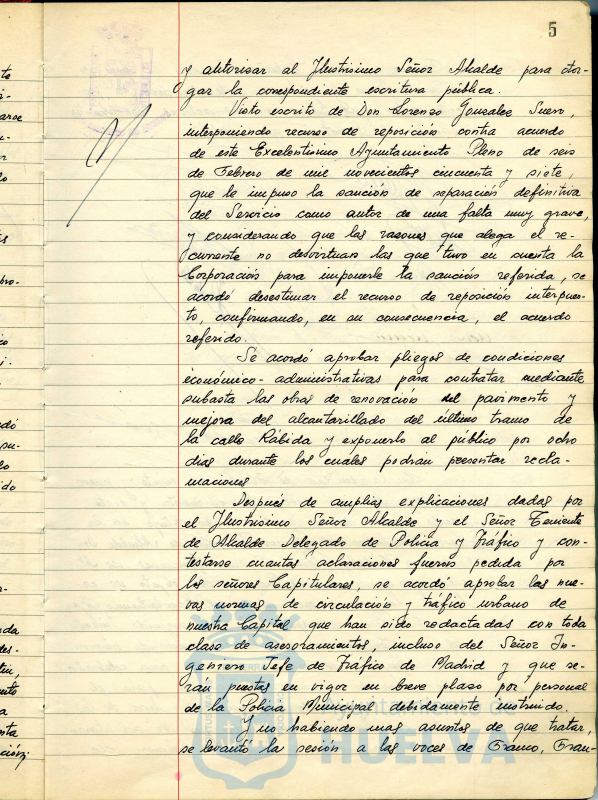 5
y autorizar al Ilustrísimo Señor Alcalde para otor-
gar la correspondiente escritura pública.
Visto escrito de Don Lorenzo Gonzalez Suero,
interponiendo recurso de reposición contra acuerdo
de este Excelentísimo Ayuntamiento Pleno de seis
de Febrero de mil novecientos cincuenta y siete,
que le impuso la sanción de separación definitiva
del Servicio como autor de una falta muy grave,
y considerando que las razones que alega el re-
currente no desvirtuan las que tuvo en cuenta la
Corporación para imponerle la sanción referida, se
acordó desestimar el recurso de reposición interpues-
to, confirmando, en su consecuencia, el acuerdo
referido.
Se acordó aprobar pliegos de condiciones
económico-administrativas para contratar mediante
subasta las obras de renovación del pavimento y
mejora del alcantarillado del último tramo de
la calle Rábida y exponerlo al público por ocho
dias durante los cuales podrán presentar recla-
maciones
Después de amplias explicaciones dadas por
el Ilustrísimo Señor Alcalde y el Señor Teniente
de Alcalde Delegado de Policía y Tráfico y con-
testarse cuantas aclaraciones fueron pedida por
los señores Capitulares, se acordó aprobar las nue-
vas normas de circulación y tráfico urbano de
nuestra Capital que han sido redactadas con toda
clase de asesoramientos, incluso del Señor In-
geniero Jefe de Tráfico de Madrid y que se-
rán puestas en vigor en breve plazo por personal
de la Policía Municipal debidamente instruido.
Y no habiendo mas asuntos de que tratar,
se levantó la sesión a las voces de Franco, Fran-
HUELVA